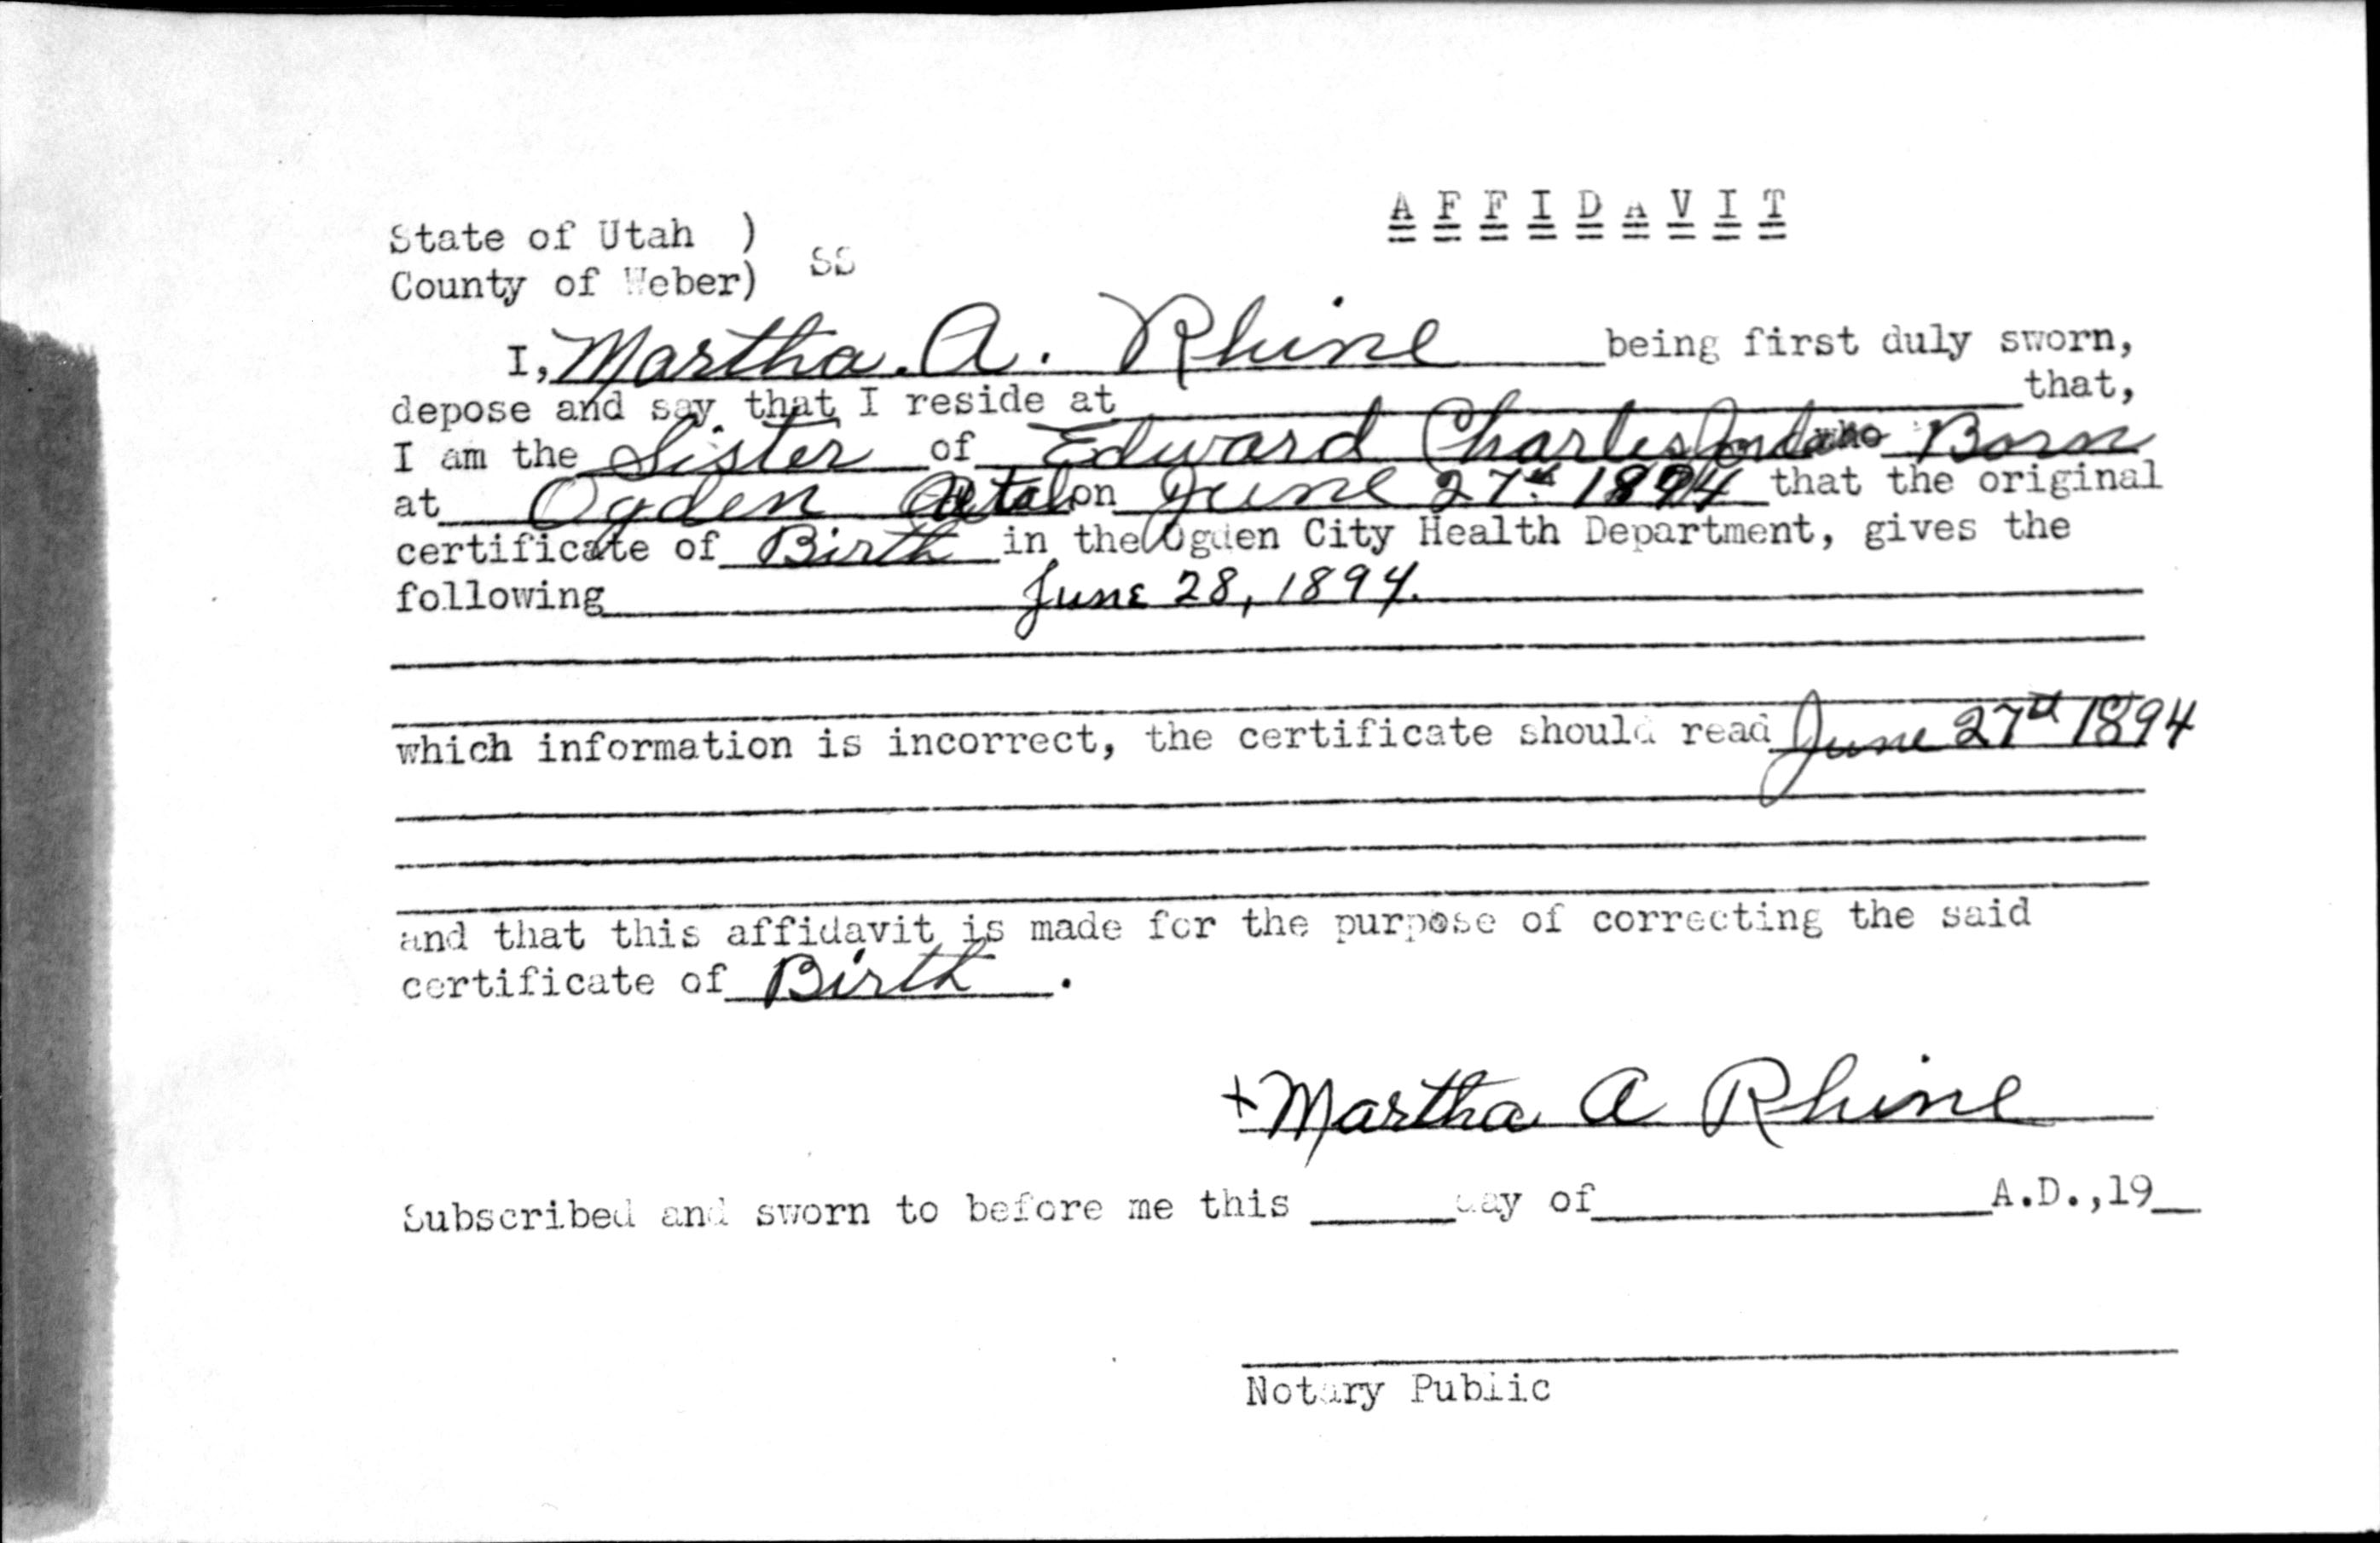 A F F I D A V I T
State of Utah )
County of Weber) SS
I, Martha. A. Rhine being first duly sworn,
depose and say that I reside at that,
I am the Sister of Edward Charles who Born
at Ogden Utah on June 27th 1894 that the original
certificate of Birth in the Ogden City Health Department, gives the
following June 28, 1894.
which information is incorrect, the certificate should read June 27th 1894
and that this affidavit is made for the purpose of correcting the said
certificate of Birth .
+ Martha A Rhine
Subscribed and sworn to before me this day of A.D.,19
Notary Public